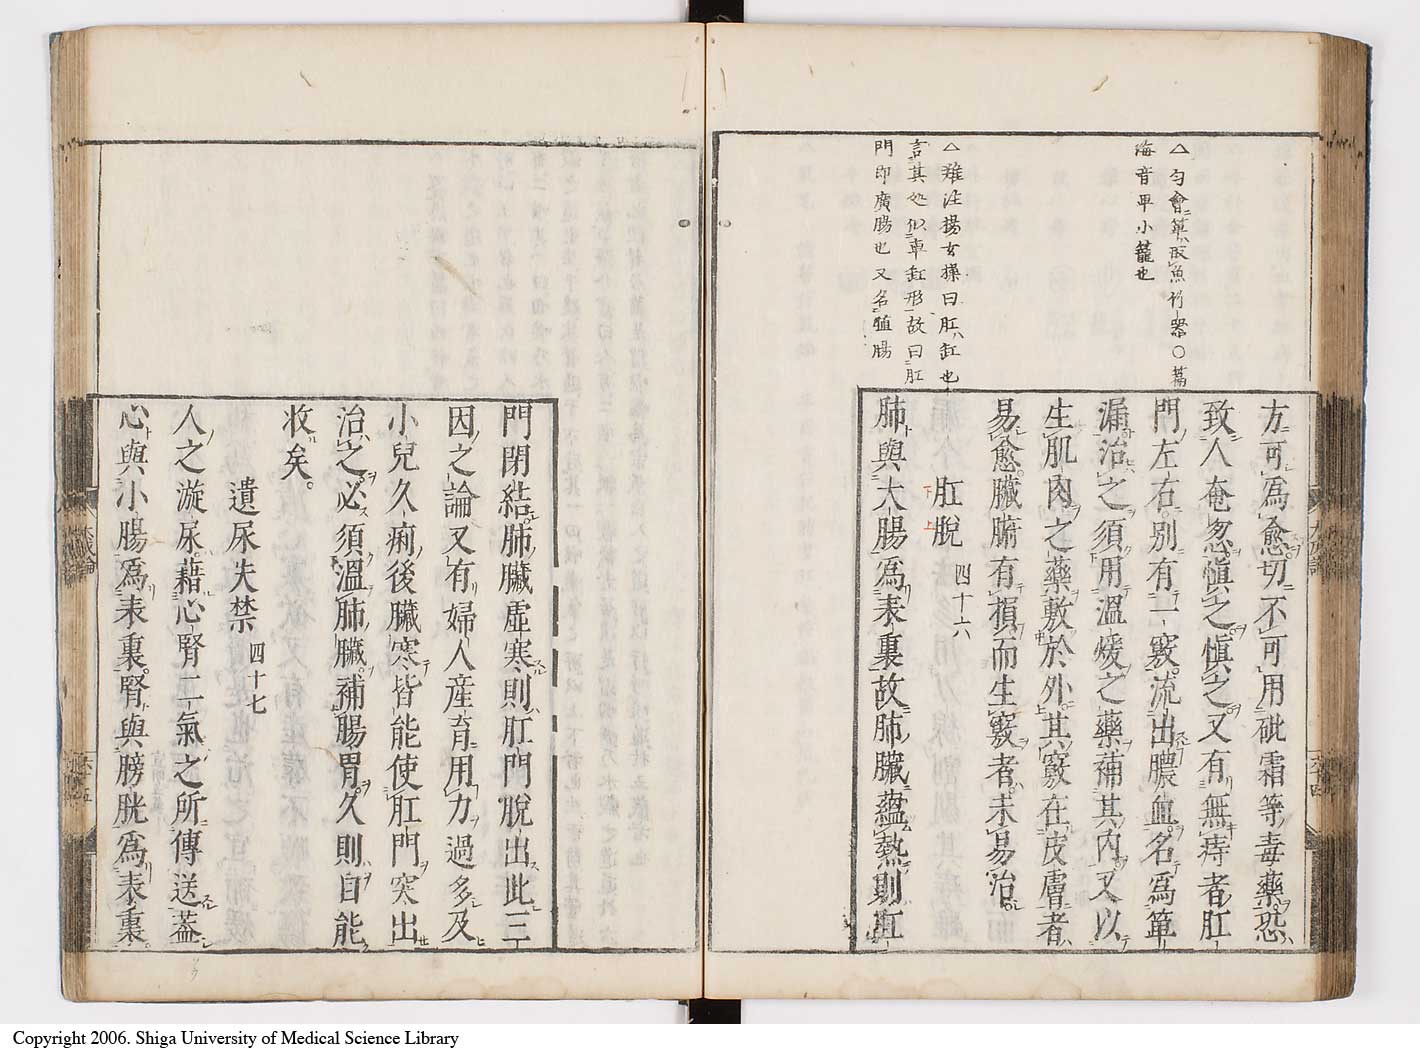 △匀會箄取魚竹器○篇
海音平小籠也
△難注揚玄操曰肛釭也
言其処似車釭形故曰肛
門即廣腸也又名䐈腸
方可爲愈切不可用砒霜等毒藥恐
致人奄忽愼之愼之又有無痔者肛
門左右別有一竅流出膿血名爲箄
漏治之須用溫煖之藥補其內又以
生肌肉之藥敷於外其竅在皮膚者
易愈臟腑有損而生竅者未易治
肛脫 四十六
肺與大腸爲表裏故肺臟蘊熱則肛
門閉結肺臟虛寒則肛門脫出此三
因之論又有婦人產育用力過多及
小兒久痢後臟寒皆能使肛門突出
治之必須溫肺臟補腸胃久則自能
收矣
遺尿失禁 四十七
人之漩尿藉心腎二氣之所傳送蓋
心與小腸爲表裏腎與膀胱爲表裏
Copyright 2006. Shiga University of Medical Science Library